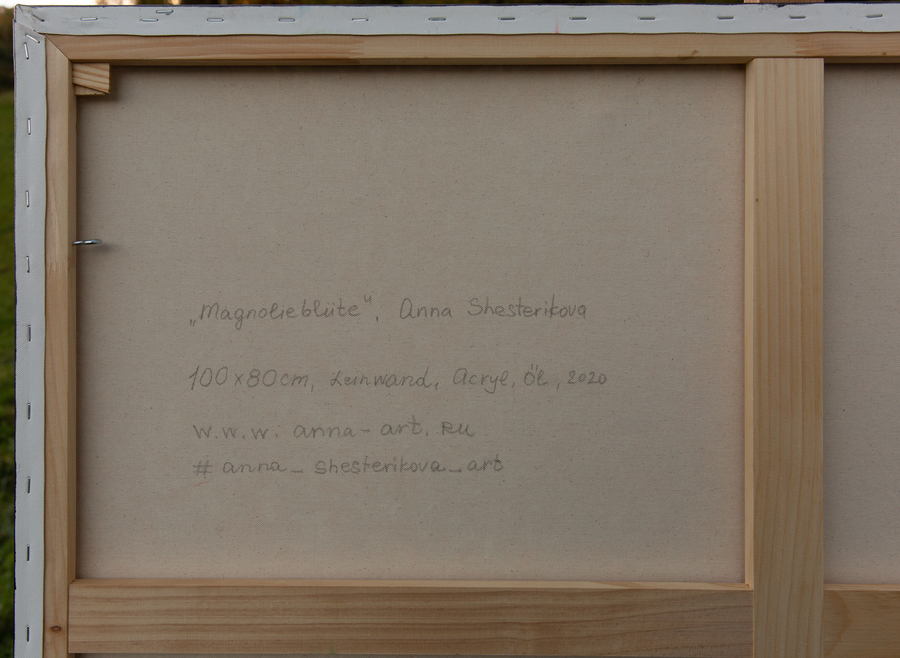 „Magnolieblüte“, Anna Shesterikova
100x80cm, Leinwand, Acryl, Öl, 2020
w.w.w. anna-art.ru
# anna_shesterikova_art